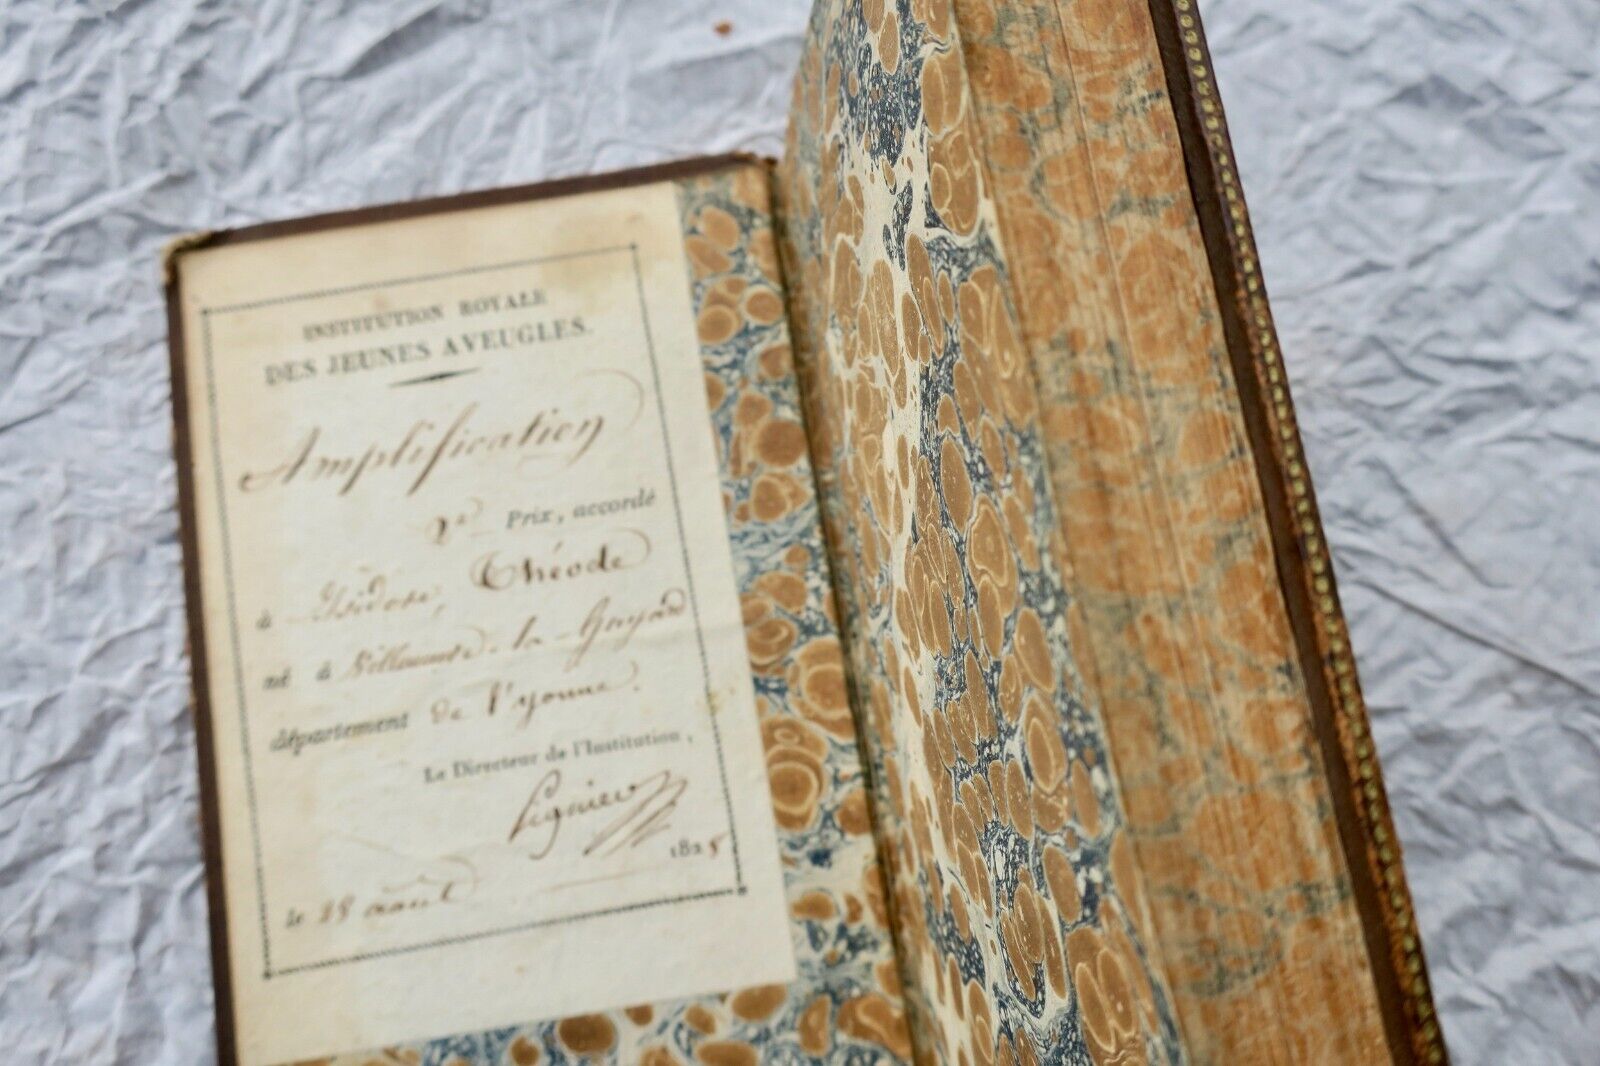 INSTITUTION ROYALE
DES JEUNES AVEUGLES.
Amplification
2e Prix, accordé
à Isidore, Théode
né à Villeneuve-la-Guyard
département de l'yonne.
Le Directeur de l'Institution,
Pignier
1825
le 28 août